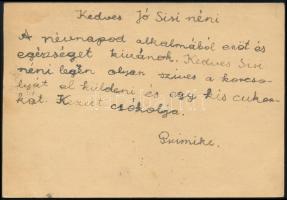 Kedves Jó Sisi néni
A névnapod alkalmából erőt és
egészséget kívánok. Kedves Sisi
néni legén olyan szives a korcso-
lyát el küldeni és egy kis cukor-
kát. Kezeit csókolja.
Primike.